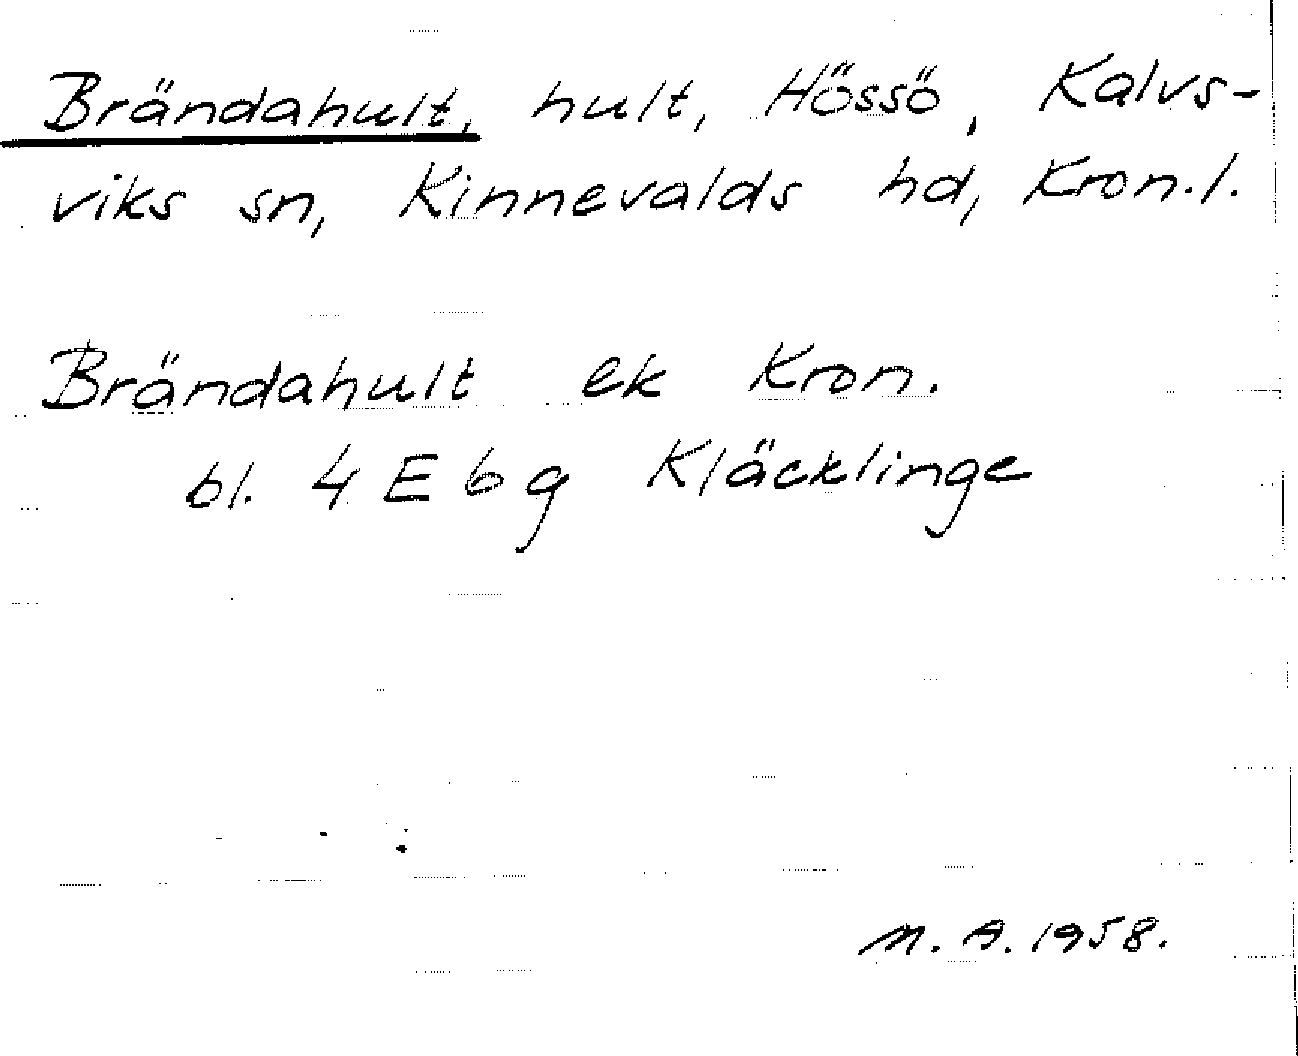 Brändahult, hult, Hössö, Kalvs-
viks sn, Kinnevalds hd, Kron.l.
Brändahult ek Kron.
bl. 4 E 6 g Kläcklinge
M. A. 1958.